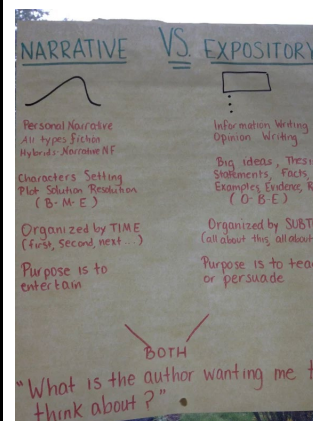 NARRATIVE VS. EXPOSITORY
Personal Narrative
All types fiction
Hybrids-Narrative NF
Characters Setting
Plot Solution Resolution
(B-M-E)
Organized by TIME
(first, second, next...)
Purpose is to
entertain
Information Writing
Opinion Writing
Big ideas, Thesis
Statements, Facts,
Examples, Evidence,
(O-B-E)
Organized by
(all about this, all about
Purpose is to
or persuade
BOTH
"What is the author wanting me
think about?"